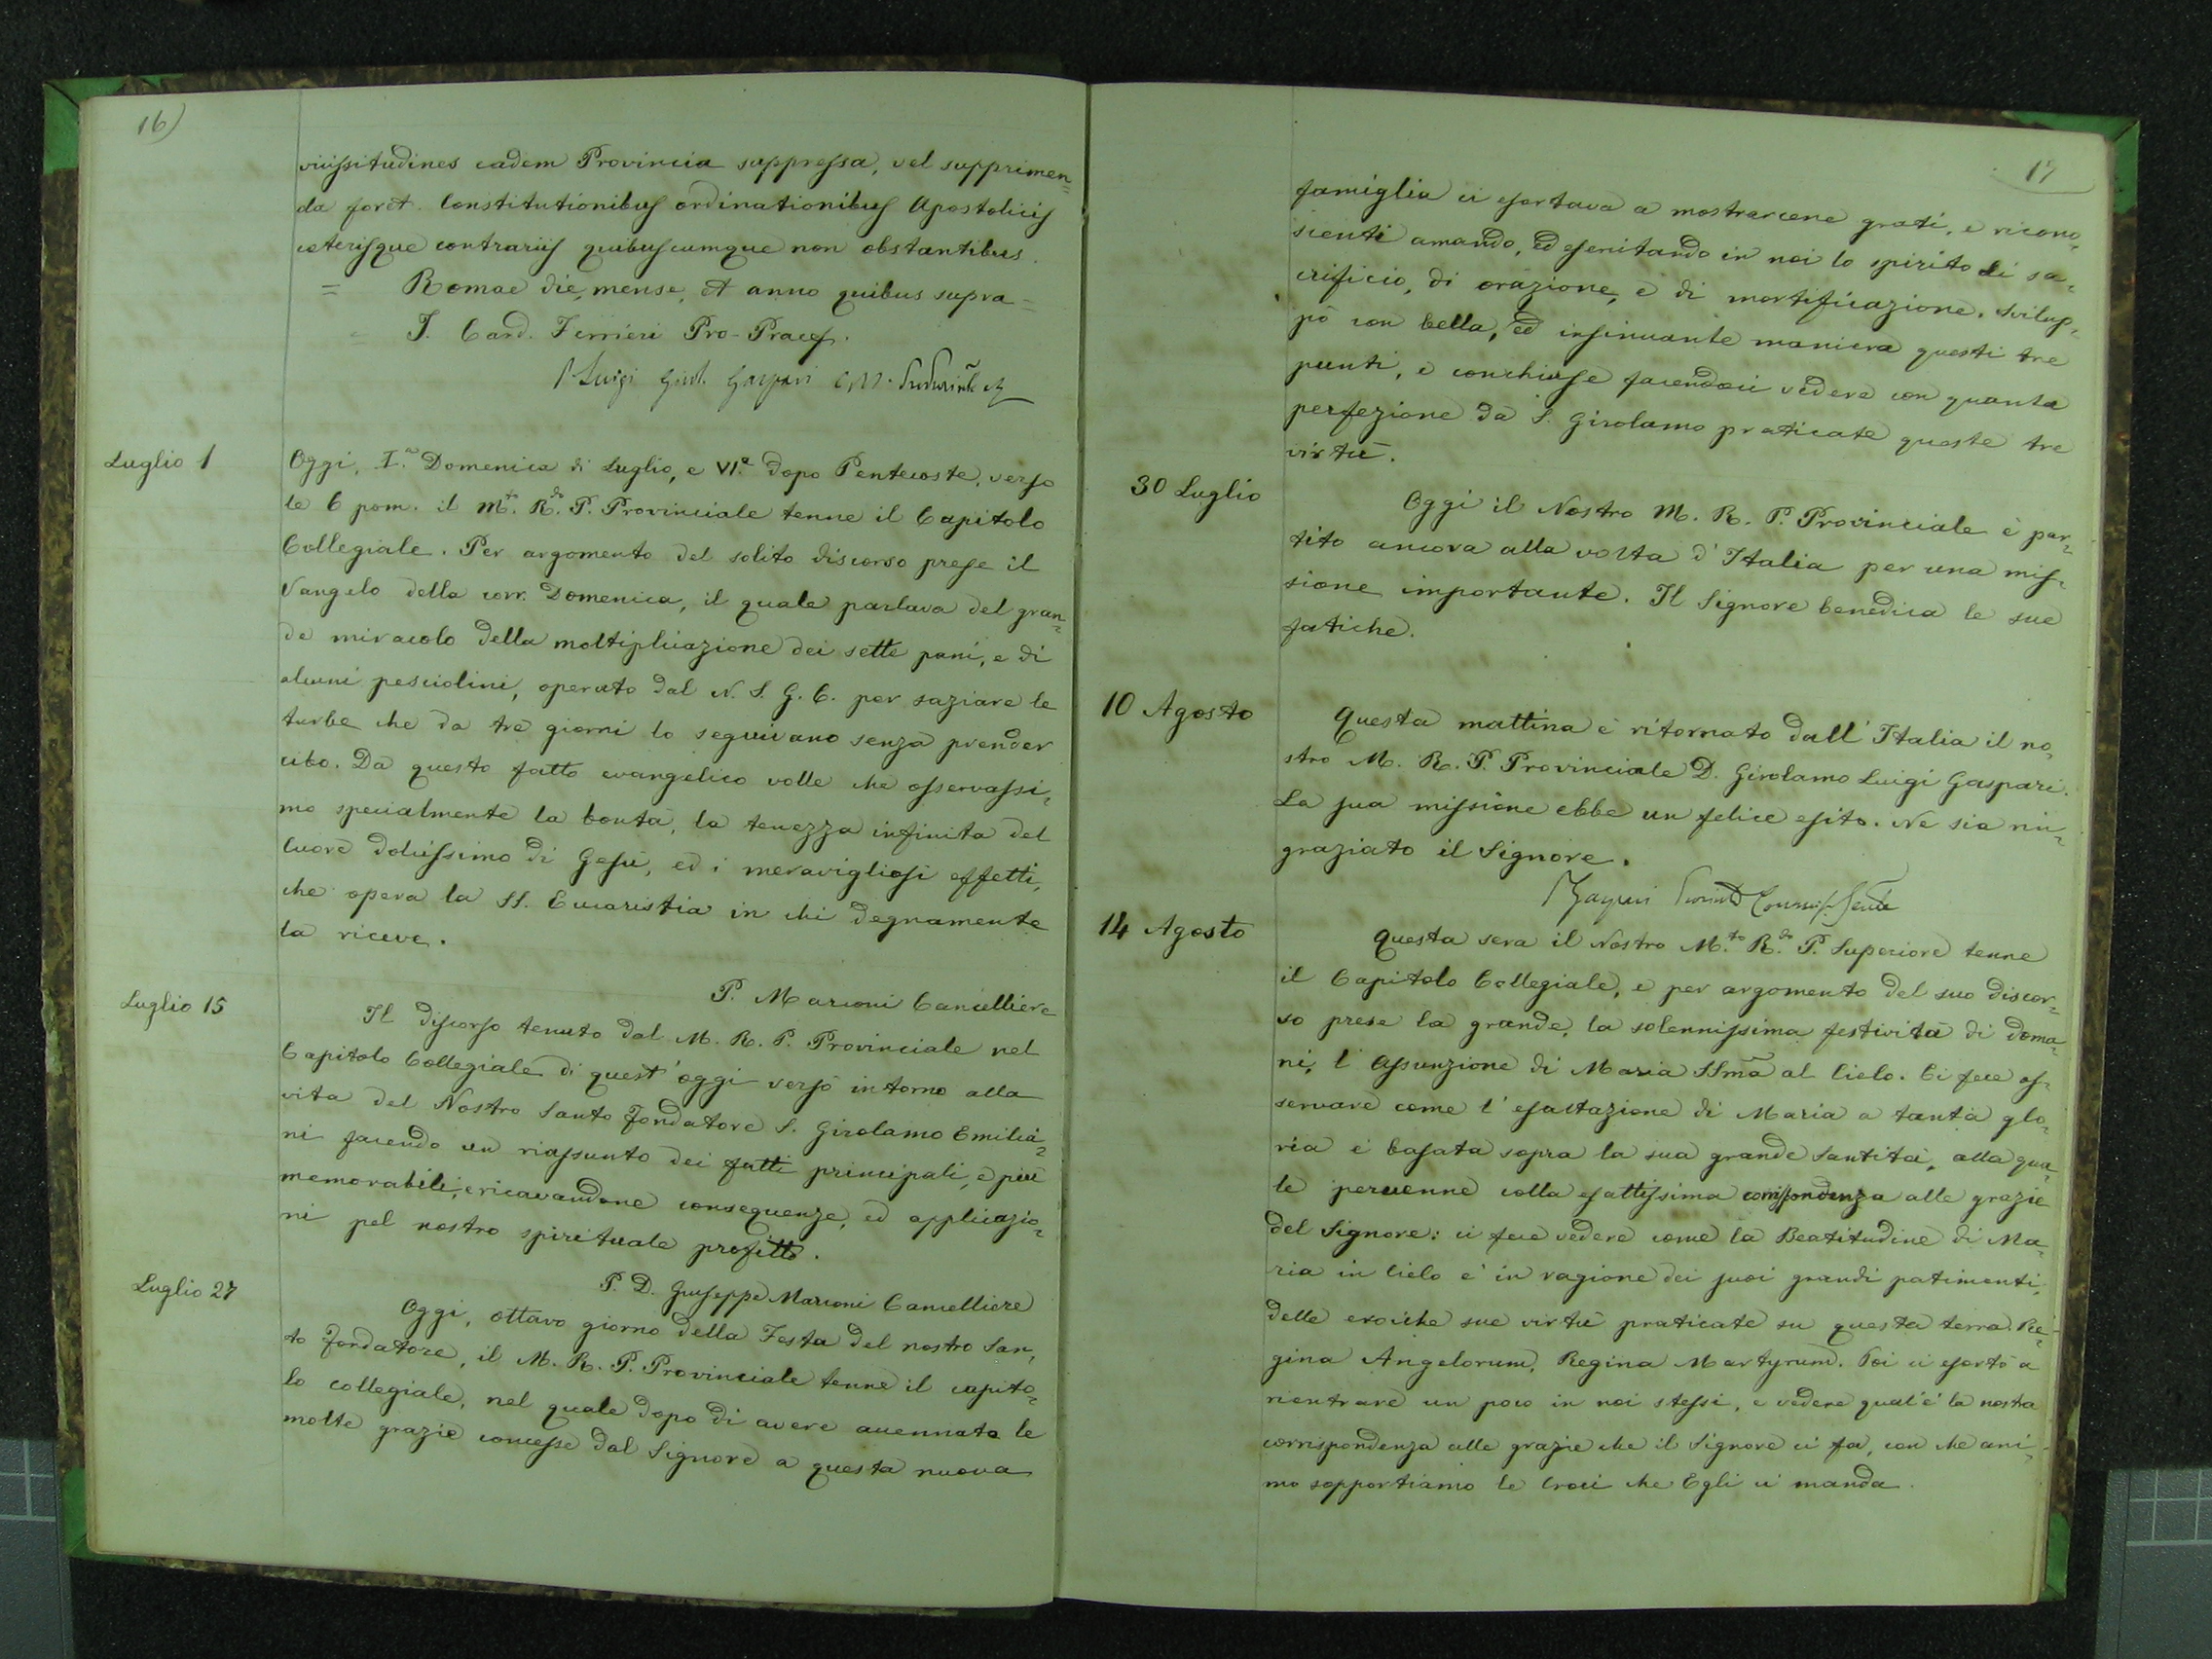 16)
vicissitudines eadem Provincia suppressa, vel supprimen=
da foret. Constitutionibus ordinationibus Apostolicis
ceterisque contrariis quibuscumque non obstantibus.
= Romae die, mense, et anno quibus supra =
I. Card. Ferrieri Pro-Praef.
Luigi Girol. Gaspari
Luglio 1
Oggi, I.ª Domenica di Luglio, e VI.ª dopo Pentecoste, verso
le 6 pom. il M.to R.do P. Provinciale tenne il Capitolo
Collegiale. Per argomento del solito discorso prese il
Vangelo della corr. Domenica, il quale parlava del gran=
de miracolo della moltiplicazione dei sette pani, e di
alcuni pesciolini, operato dal N. S. G. C. per saziare le
turbe che da tre giorni lo seguivano senza prender
cibo. Da questo fatto evangelico volle che osservassi=
mo specialmente la bontà, la tenezza infinita del
Cuore dolcissimo di Gesù, ed i meravigliosi effetti,
che opera la SS. Eucaristia in chi degnamente
la riceve.
P. Marconi Cancelliere
Luglio 15
Il discorso tenuto dal M. R. P. Provinciale nel
Capitolo Collegiale di quest'oggi versò intorno alla
vita del Nostro Santo Fondatore S. Girolamo Emilia=
ni facendo un riassunto dei fatti principali, e più
memorabili, e ricavandone conseguenze, ed applicazio=
ni pel nostro spirituale profitto.
P. D. Giuseppe Marconi Cancelliere
Luglio 27
Oggi, ottavo giorno della Festa del nostro San=
to Fondatore, il M. R. P. Provinciale tenne il capito=
lo collegiale, nel quale dopo di avere accennato le
molte grazie concesse dal Signore a questa nuova
17
famiglia ci esortava a mostrarcene grati, e ricono=
scenti amando, ed esercitando in noi lo spirito di sa=
crificio, di orazione, e di mortificazione. Svilup=
pò con bella, ed insinuante maniera questi tre
punti, e conchiuse facendoci vedere con quanta
perfezione da S. Girolamo praticate queste tre
virtù.
30 Luglio
Oggi il Nostro M. R. P. Provinciale è par=
tito ancora alla volta d'Italia per una mis=
sione importante. Il Signore benedica le sue
fatiche.
10 Agosto
Questa mattina è ritornato dall'Italia il no=
stro M. R. P. Provinciale D. Girolamo Luigi Gaspari.
La sua missione ebbe un felice esito. Ne sia rin=
graziato il Signore.
Gaspari
14 Agosto
Questa sera il Nostro M.to R.do P. Superiore tenne
il Capitolo Collegiale, e per argomento del suo discor=
so prese la grande, la solennissima festività di doma=
ni, l'Assunzione di Maria SSma al Cielo. Ci fece os=
servare come l'esaltazione di Maria a tanta glo=
ria è basata sopra la sua grande Santità, alla qua=
le pervenne colla esattissima corrispondenza alle grazie
del Signore: ci fece vedere come la Beatitudine di Ma=
ria in Cielo e' in ragione dei suoi grandi patimenti,
delle eroiche sue virtù praticate su questa terra. Re=
gina Angelorum, Regina Martyrum. Poi ci esortò a
rientrare un poco in noi stessi, e vedere qual'è la nostra
corrispondenza alle grazie che il Signore ci fa, con che ani=
mo sopportiamo le Croci che Egli ci manda.